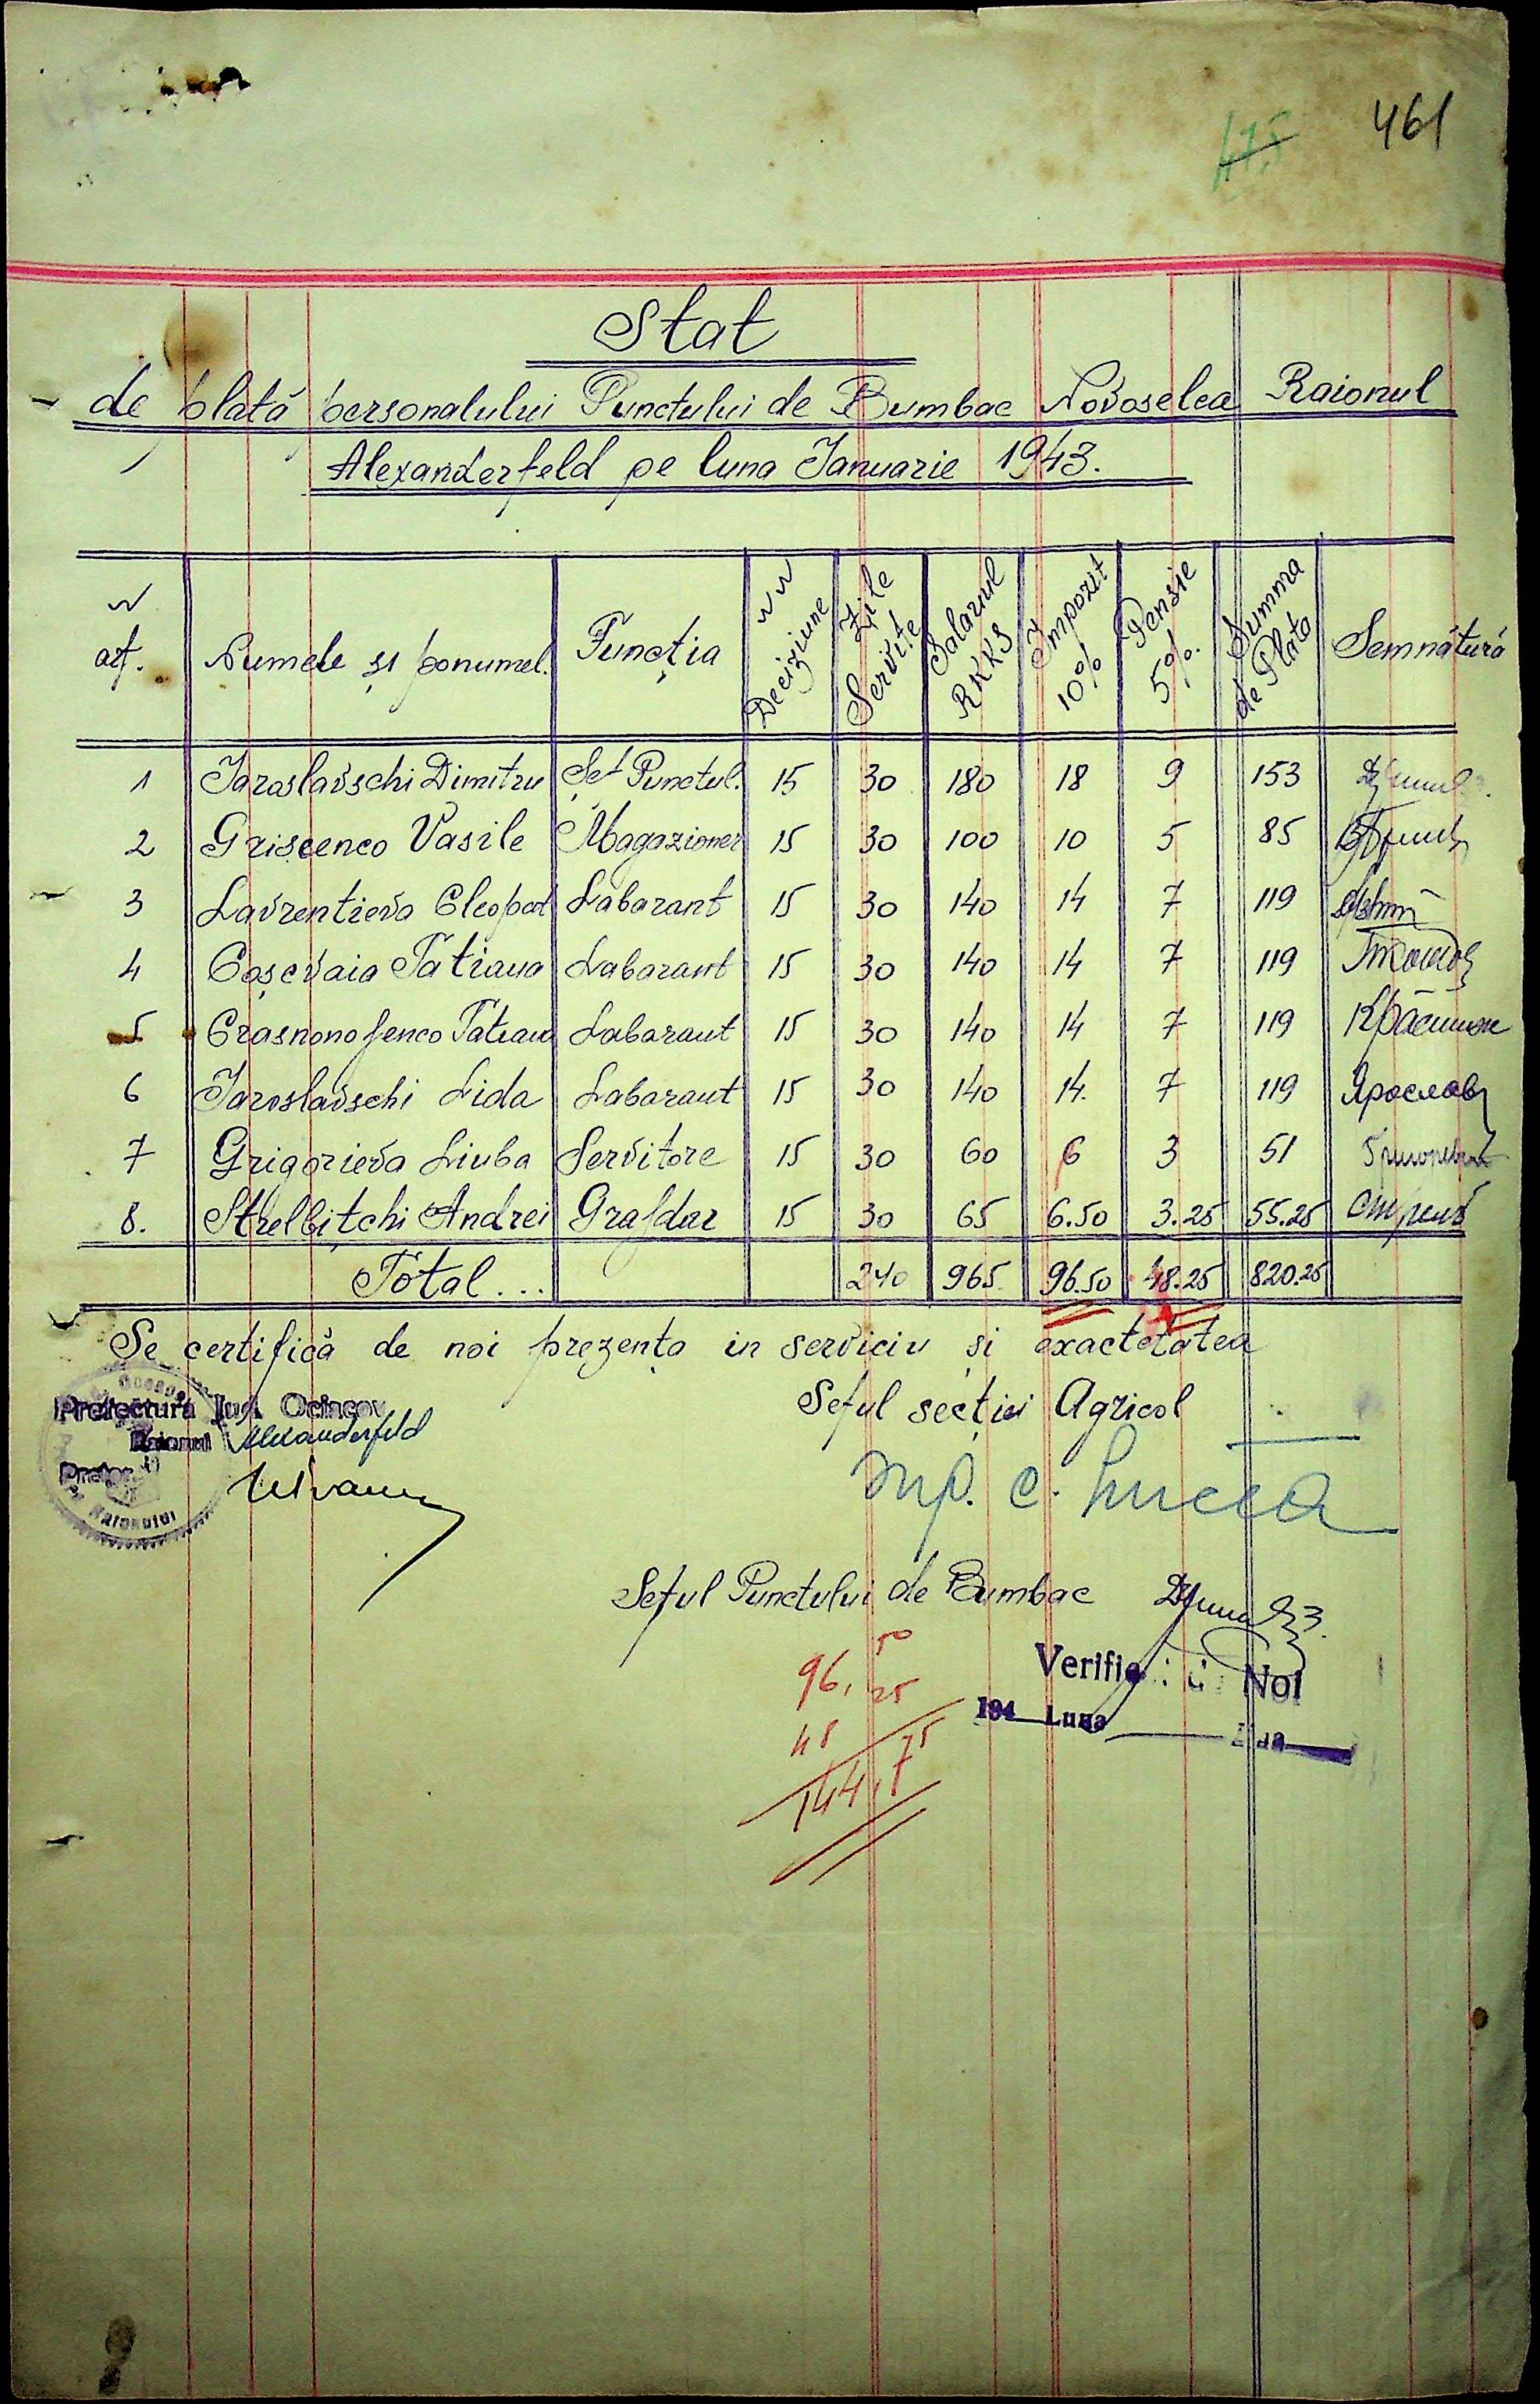 461
475
Stat
de plată personalului Punctului de Bumbac Novoselca Raionul
Alexanderfeld pe luna Januarie 1943.
N art. Numele și ponumel. Funcția NN Deciziune Zile Servite Salariul RKKS Impozit 10% Pensie 5%. Summa de Plato Semnătură
1 Jaroslavschi Dimitru Șef Punctul. 15 30 180 18 9 153
2 Grișcenco Vasile Magazioner 15 30 100 10 5 85
3 Lavrentieva Cleopat Labarant 15 30 140 14 7 119
4 Coșevaia Tatiana Labarant 15 30 140 14 7 119
5 Crasnonojenco Tatiana Labarant 15 30 140 14 7 119
6 Jaroslavschi Lida Labarant 15 30 140 14. 7 119 Ярослав
7 Grigorieva Liuba Servitore 15 30 60 6 3 51
8. Strelbițchi Andrei Grajdar 15 30 65 6.50 3.25 55.25
Total... 240 965 96.50 48.25 820.25
Se certifică de noi prezența in serviciu și exactetatea
Prefectura Jud. Ocincov
Raionul Alexanderfeld
Pretor
Raionului
Seful secției Agricol
Seful Punctului de Bumbac
Verific Noi
194 Luna Ziua
96,50
48 25
144,75